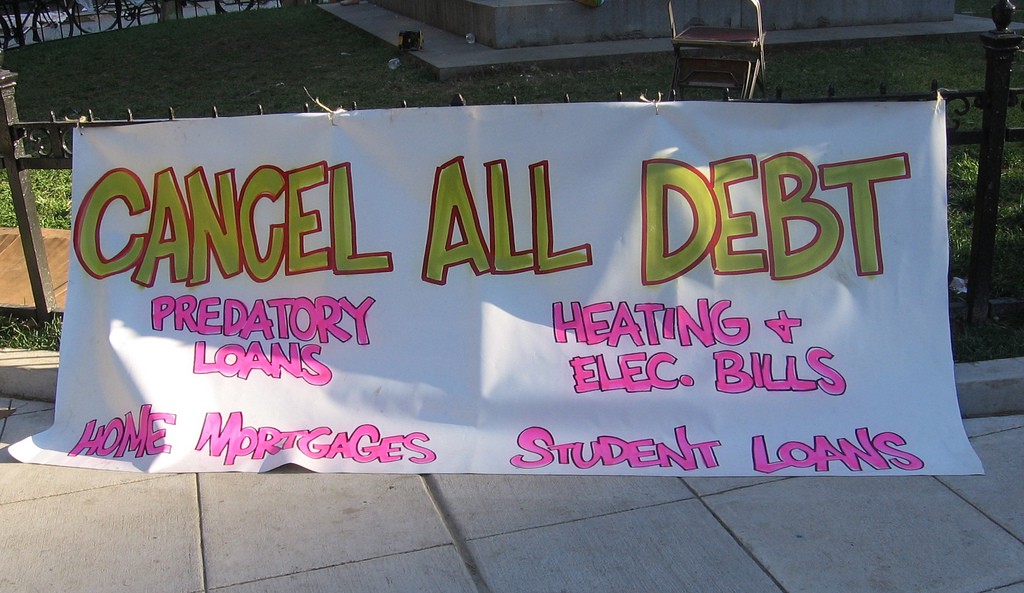 CANCEL ALL DEBT
PREDATORY
LOANS
HEATING +
ELEC. BILLS
HOME MORTGAGES
STUDENT LOANS